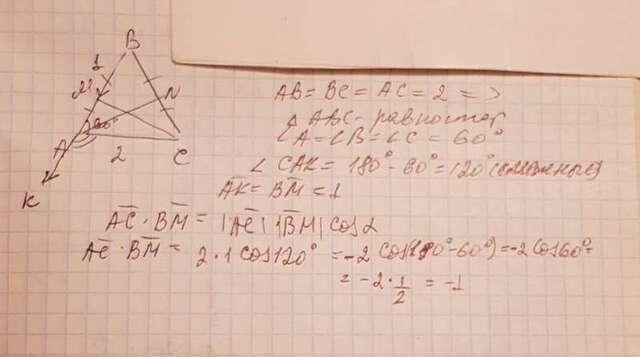 B
1
M
N
60°
A
2
C
K
AB = BC = AC = 2 =>
Δ ABC - равностор
∠A = ∠B = ∠C = 60°
∠ CAK = 180° - 60° = 120° (смежные)
A̅K̅ = B̅M̅ = 1
A̅C̅ · B̅M̅ = |A̅C̅| |B̅M̅| cos α
A̅C̅ · B̅M̅ = 2 · 1 cos 120° = -2 cos(180° - 60°) = -2 cos 60° =
= -2 · 1/2 = -1